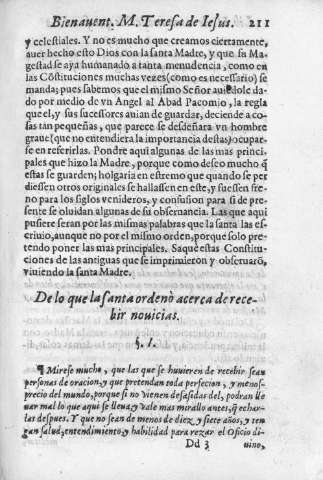 Bienauent. M. Teresa de Iesus. 211
y celestiales. Y no es mucho que creamos ciertamente,
auer hecho esto Dios con la santa Madre, y que su Ma-
gestad se aya humanado a tanta menudencia, como en
las Cõstituciones muchas vezes (como es necessario) se
manda; pues sabemos que el mismo Señor auiẽdole da-
do por medio de vn Angel al Abad Pacomio, la regla
que el, y sus sucessores auian de guardar, deciende a co-
sas tan pequeñas, que parece se desdeñara vn hombre
graue (que no entendiera la importancia destas) ocupar-
se en referirlas. Pondre aqui algunas de las mas princi-
pales que hizo la Madre, porque como deseo mucho q̃
estas se guarden; holgaria en estremo que quando se per
diessen otros originales se hallassen en este, y fuessen fre-
no para los siglos venideros, y confusion para si de pre-
sente se oluidan algunas de su obseruancia. Las que aqui
pusiere seran por las mismas palabras que la santa las es-
criuio, aunque no por el mismo orden, porque solo pre-
tendo poner las mas principales. Saquè estas Constitu-
ciones de las antiguas que se imprimieron y obseruarõ,
viuiendo la santa Madre.
De lo que la santa ordenò acerca de rece-
bir nouicias.
§. I.
¶ Mirese mucho, que las que se huuieren de recebir sean
personas de oracion, y que pretendan toda perfecion, y menos-
precio del mundo, porque si no vienen desasidas del, podran lle
uar mal lo que aqui se lleua, y vale mas mirallo antes, q̃ echar-
las despues. Y que no sean de menos de diez y siete años, y ten
gan salud, entendimiento, y habilidad para rezar el Oficio di-
Dd 3 uino,